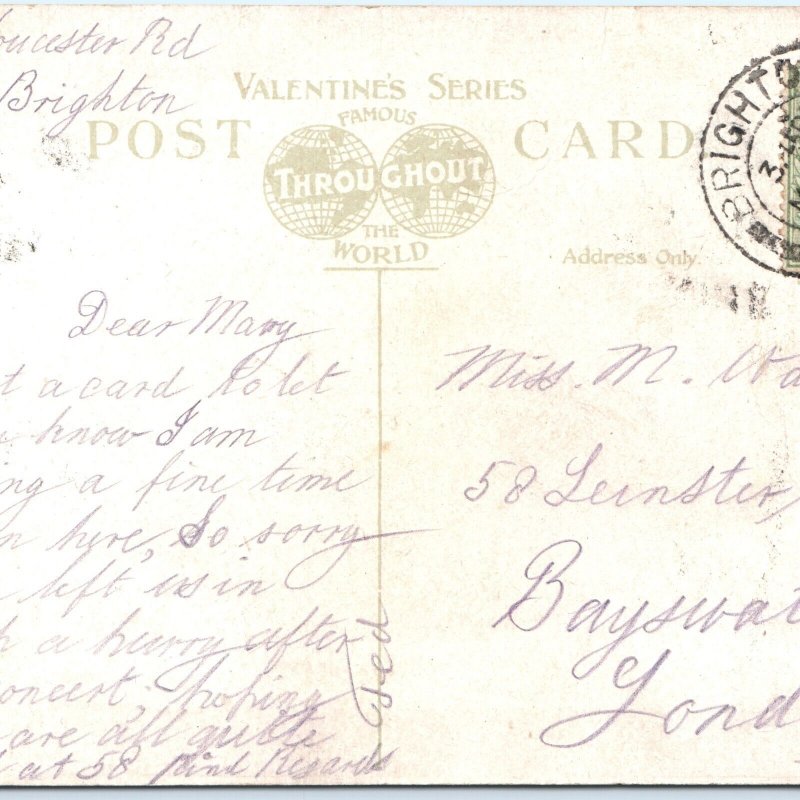 oucester Rd
Brighton
VALENTINE'S SERIES
POST CARD
FAMOUS
THROUGHOUT
THE
WORLD
Address Only.
BRIGHTO
Dear Mary
t a card to let
know I am
ng a fine time
n here, So sorry
left us in
h a hurry after
oncert, hoping
are all quite
at 58 Kind Regards
Ted
Miss. M. Wa
58 Leinster
Bayswat
Lond